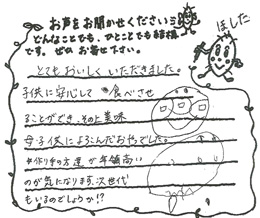 お声をお聞かせください
どんなことでも、ひとことでも結構
です。ぜひ お寄せ下さい。
ほした
とてもおいしく いただきました。
子供に安心して 食べさせ
ることができ、その上美味
母子供によろこんだおやつでした。
作り手の方達が年齢高い
のが気になります。次世代
もいるのでしょうか!?